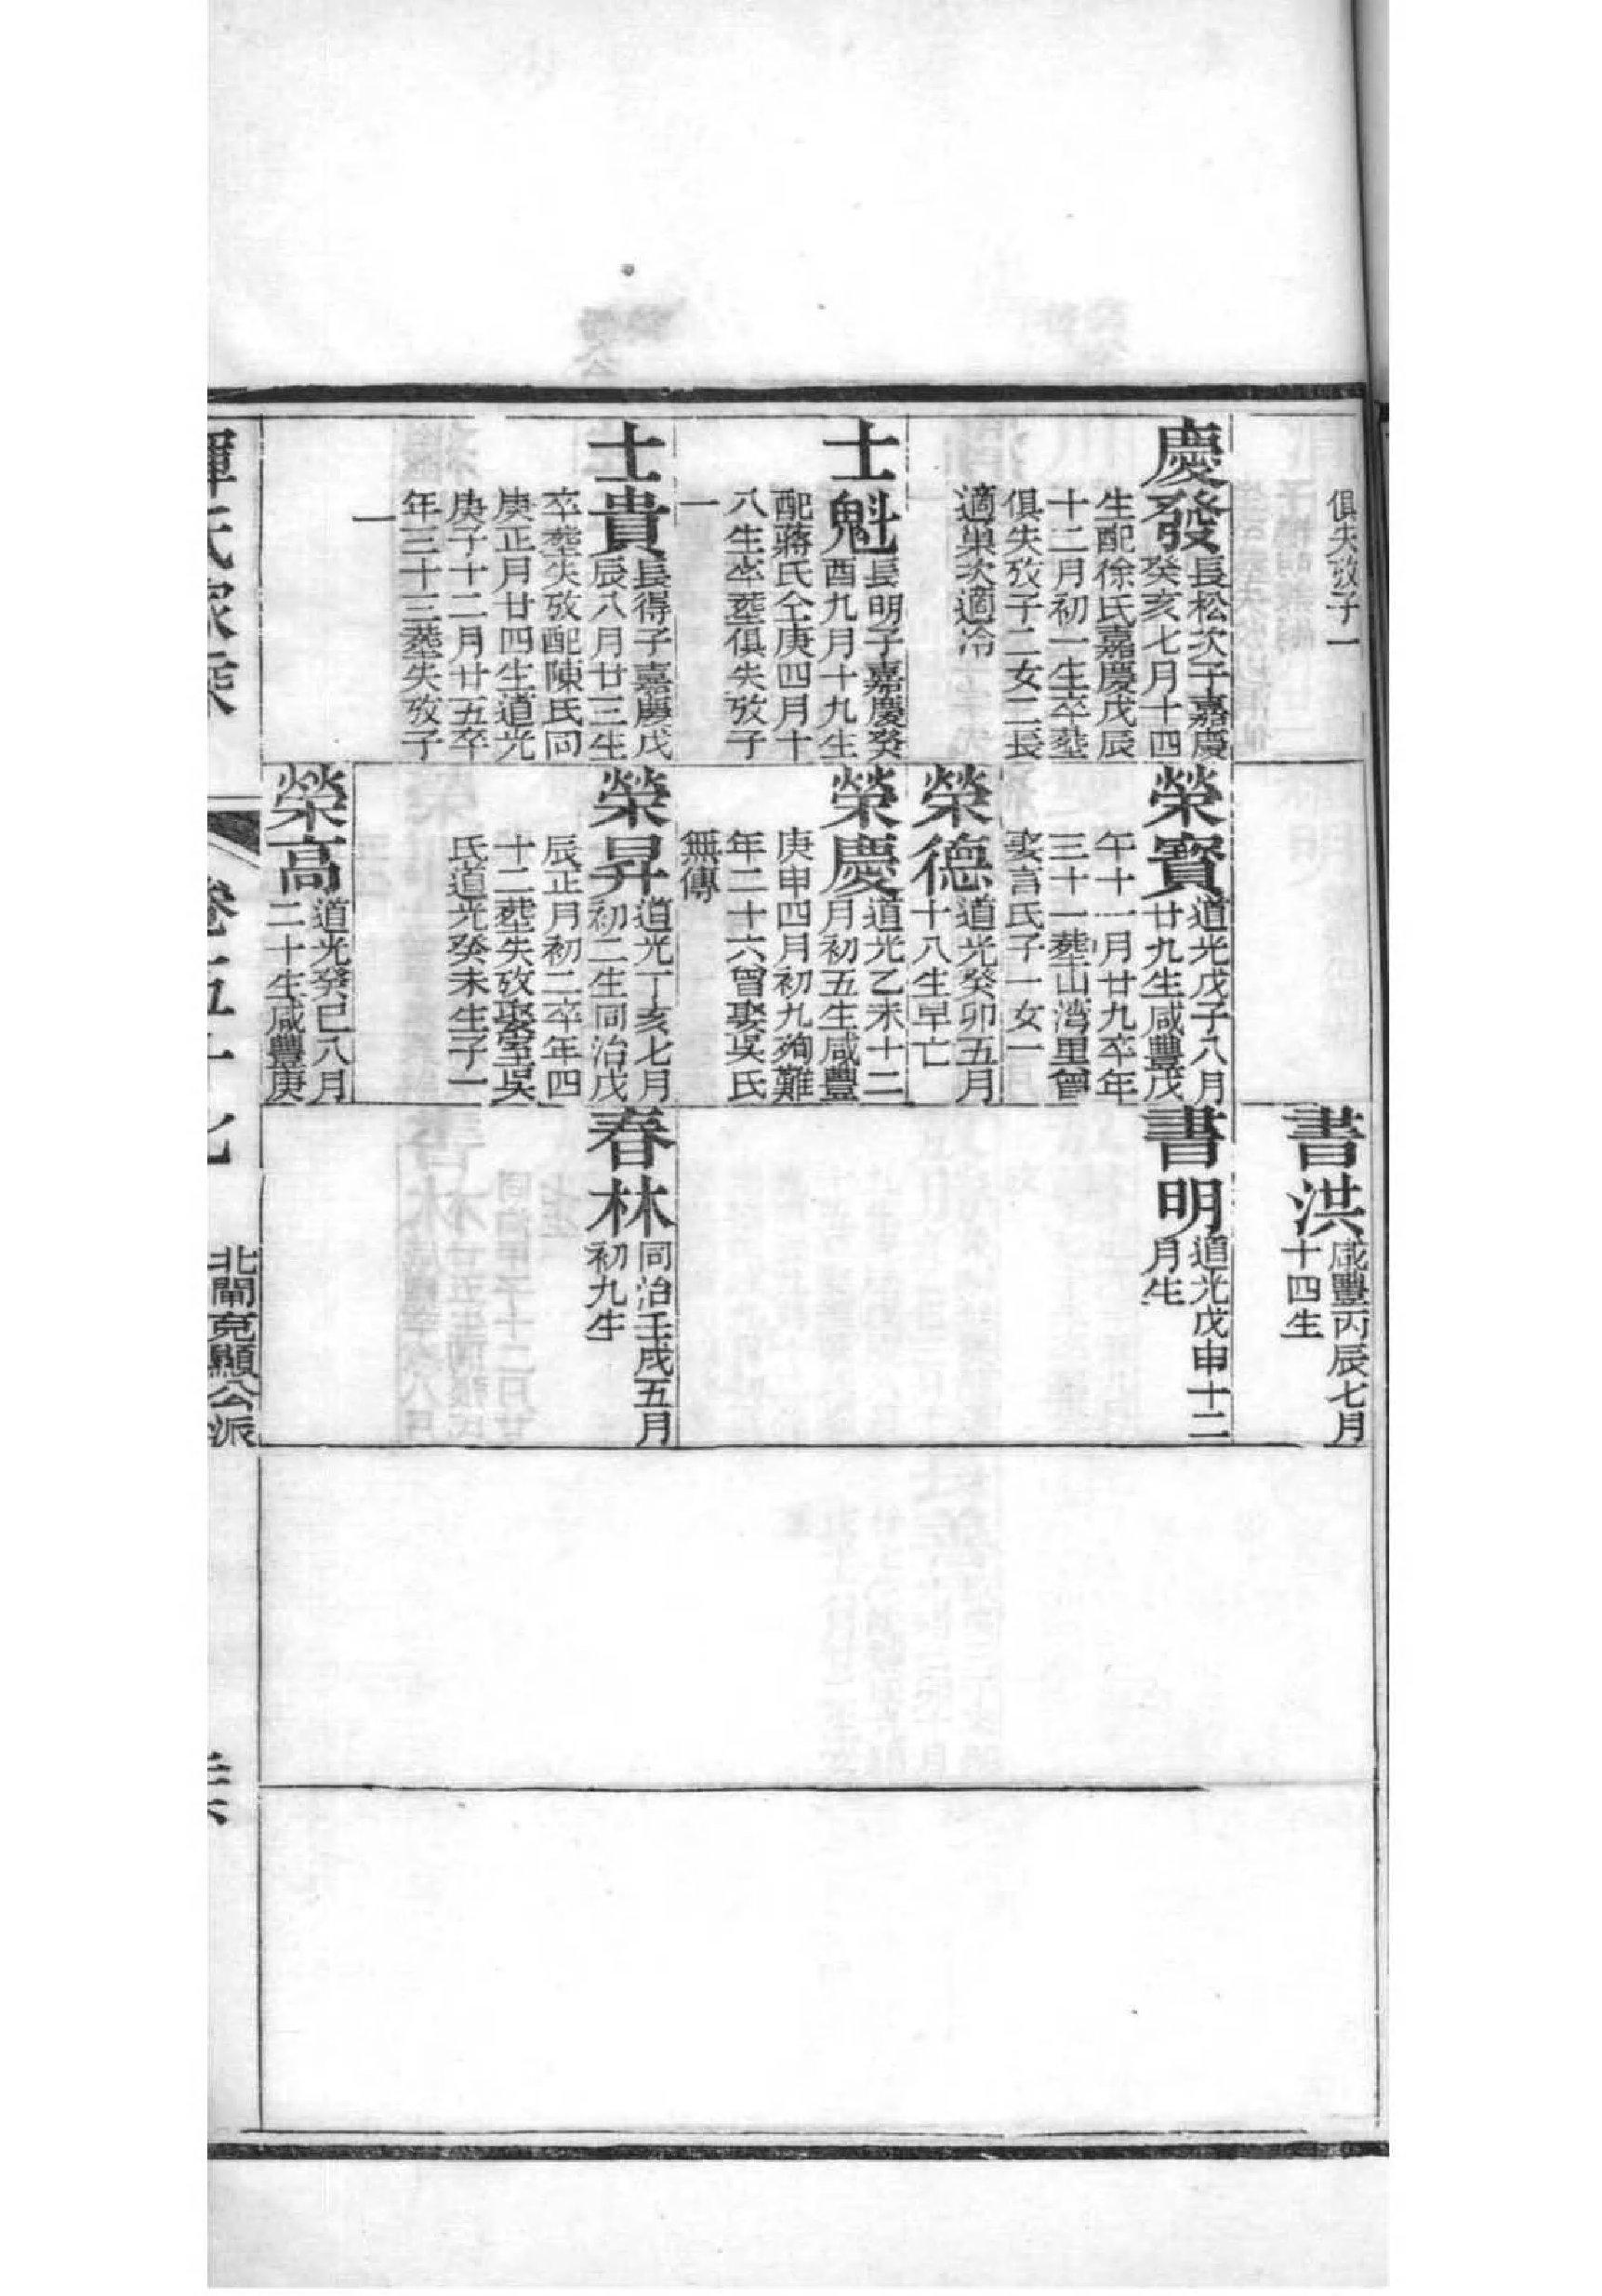 俱失攷子一
慶發
長松次子嘉慶
癸亥七月十四
生配徐氏嘉慶戊辰
十二月初一生卒塟
俱失攷子二女二長
適巢次適冷
士魁
長明子嘉慶癸
酉九月十九生
配蔣氏仝庚四月十
八生卒塟俱失攷子
一
士貴
長得子嘉慶戊
辰八月廿三生
卒塟失攷配陳氏同
庚正月廿四生道光
庚子十二月廿五卒
年三十三塟失攷子
一
榮寶
道光戊子八月
廿九生咸豐戊
午十一月廿九卒年
三十一塟山湾里曾
娶言氏子一女一
榮德
道光癸卯五月
十八生早亡
榮慶
道光乙未十二
月初五生咸豐
庚申四月初九殉難
年二十六曾娶吳氏
無傳
榮昇
道光丁亥七月
初二生同治戊
辰正月初二卒年四
十二塟失攷娶室吳
氏道光癸未生子一
榮高
道光癸巳八月
二十生咸豐庚
書洪
咸豐丙辰七月
十四生
書明
道光戊申十二
月生
春林
同治壬戌五月
初九生
北閘克顯公派